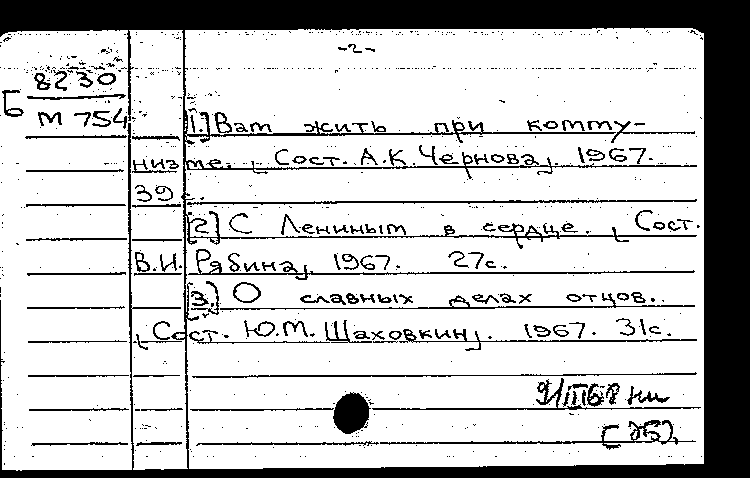 -2-
Б 8230
М 754
[1.] Вам жить при комму-
низме. [Сост. А.К. Чернова]. 1967.
39 с.
[2.] С Лениным в сердце. [Сост.
В.И. Рябина]. 1967. 27с.
[3.] О славных делах отцов.
[Сост. Ю.М. Шаховкин]. 1967. 31с.
9/III68